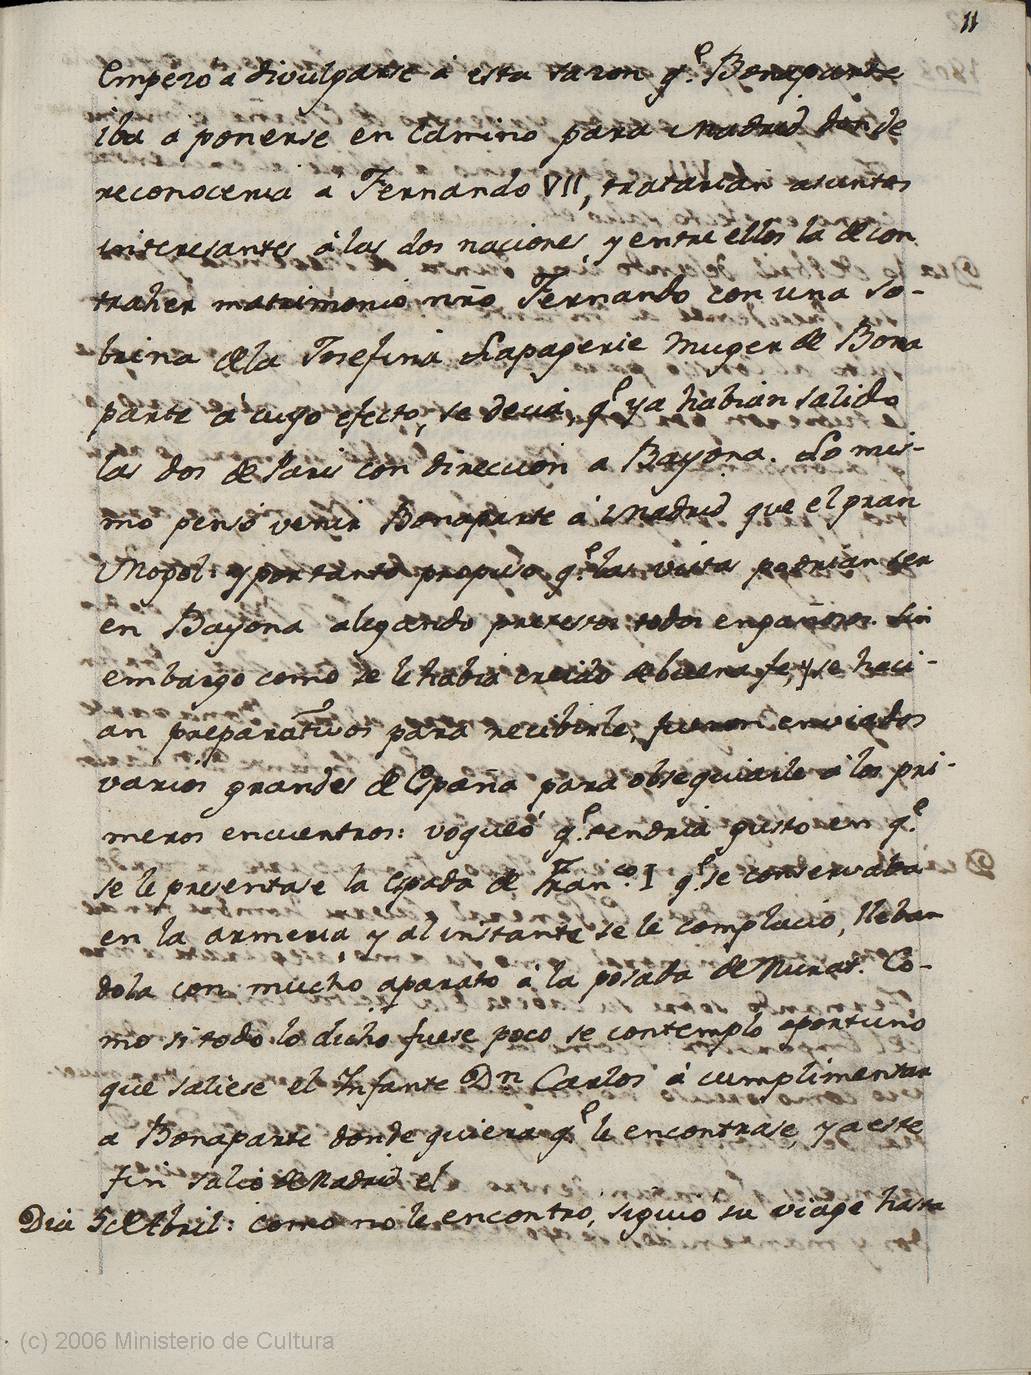 11
Empezó a divulgarse á esta sazon q.e Bonaparte
iba a ponerse en Camino para Madrid donde
reconoceria á Fernando VII, tratarian asuntos
interesantes á las dos naciones, y entre ellos la de con
traher matrimonio nr̃o Fernando con una So-
brina de la Josefina Lapagerie Muger de Bona
parte á cuyo efecto, se decia, q.e ya habian salido
las dos de Paris con direccion a Bayona. Lo mis-
mo pensó venir Bonaparte á Madrid que el gran
Mogol: y por tanto propuso q.e las vistas podrian ser
en Bayona alegando pretestos todos engañosos. Sin
embargo como se le habia creido de buena fe, y se haci-
an preparativos para recibirle, fueron enviados
varios grandes de España para obsequiarle á los pri-
meros encuentros: voqueó q.e tendria gusto en q.e
se le presentase la Espada de Fran.co I q.e se conservaba
en la armeria y al instante se le complació, lleban
dola con mucho aparato á la posada de Murat. Co-
mo si todo lo dicho fuese poco se contempló oportuno
que saliese el Infante Dn Carlos á cumplimentar
a Bonaparte donde quiera q.e le encontrase, y a este
fin salió de Madrid el
Dia 5 de Abril: como no le encontró, siguió su viage hasta
(c) 2006 Ministerio de Cultura